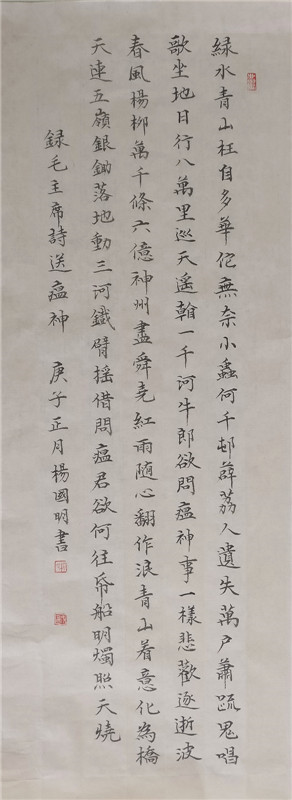 緑水青山枉自多華佗無奈小蟲何千邨薜荔人遺失萬戶蕭疏鬼唱
歌坐地日行八萬里巡天遙看一千河牛郎欲問瘟神事一樣悲歡逐逝波
春風楊柳萬千條六億神州盡舜堯紅雨隨心翻作浪青山着意化為橋
天連五嶺銀鋤落地動三河鐵臂搖借問瘟君欲何往帋船明燭照天燒
録毛主席詩送瘟神 庚子正月楊國明書